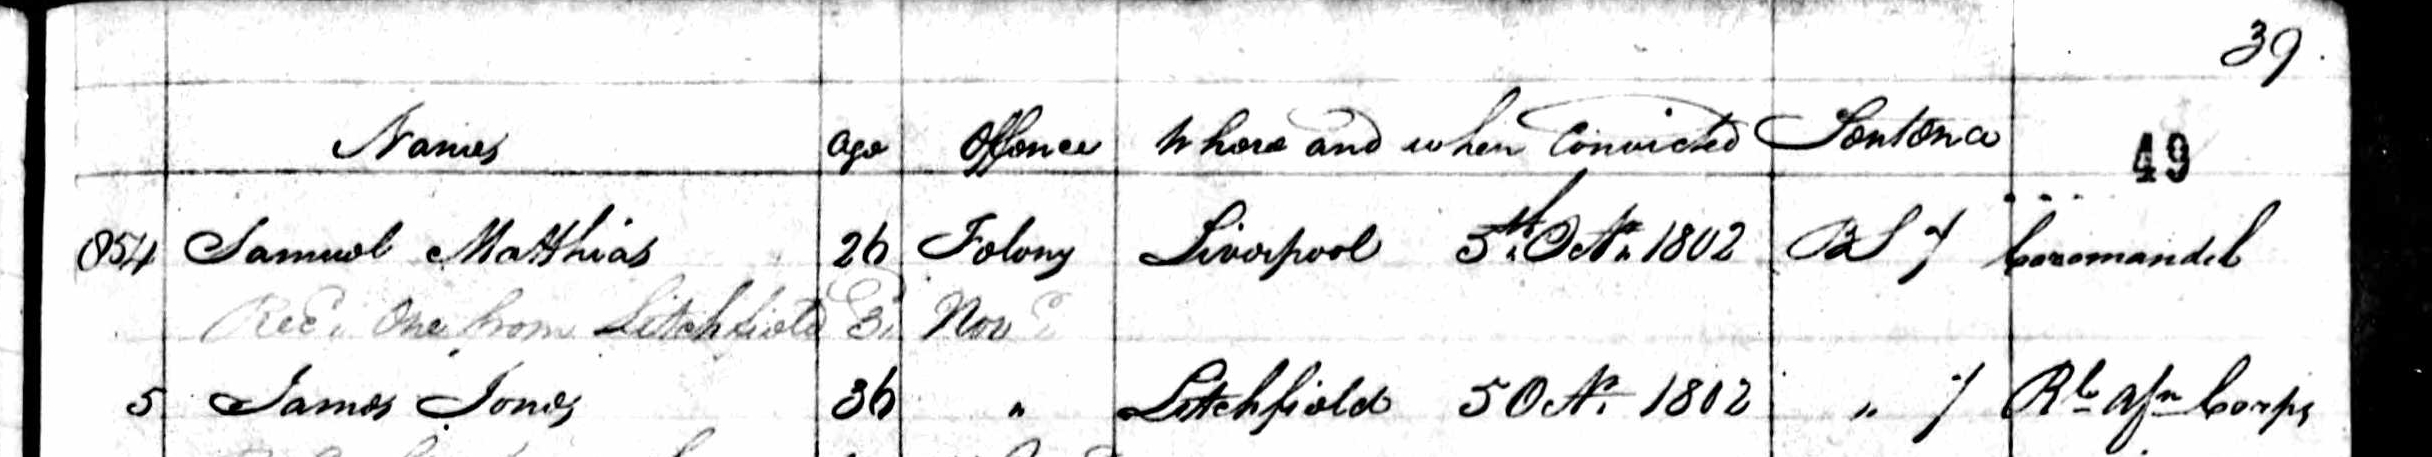 39.
Names age Offence Where and when Convicted Sentence 49
854 Samuel Matthias 26 Felony Liverpool 5th Octr. 1802 7 Coromandel
Recd. One from Litchfield 3d. Nov
5 James Jones 36 " Litchfield 5 Octr. 1802 " 7 Rl. Afn Corps